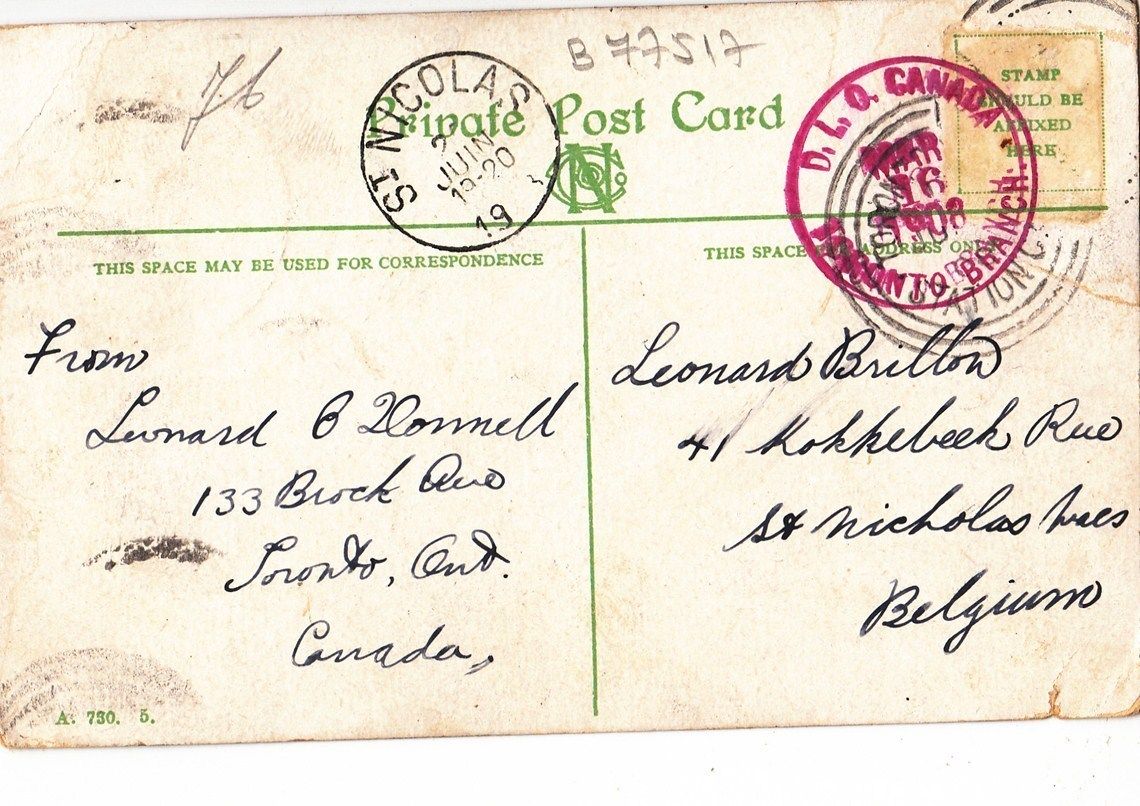 76
B 77517
Private Post Card
ST NICOLAS
JUIN
19-20
19
D. L. O. CANADA
MAR
16
1908
TORONTO BRANCH.
STATION C
STAMP
SHOULD BE
AFFIXED
HERE
THIS SPACE MAY BE USED FOR CORRESPONDENCE
THIS SPACE FOR ADDRESS ONLY
From
Leonard O Donnell
133 Brock Ave
Toronto, Ont.
Canada,
Leonard Brillon
41 Kokkebeek Rue
St Nicholas Waes
Belgium
A. 730. 5.